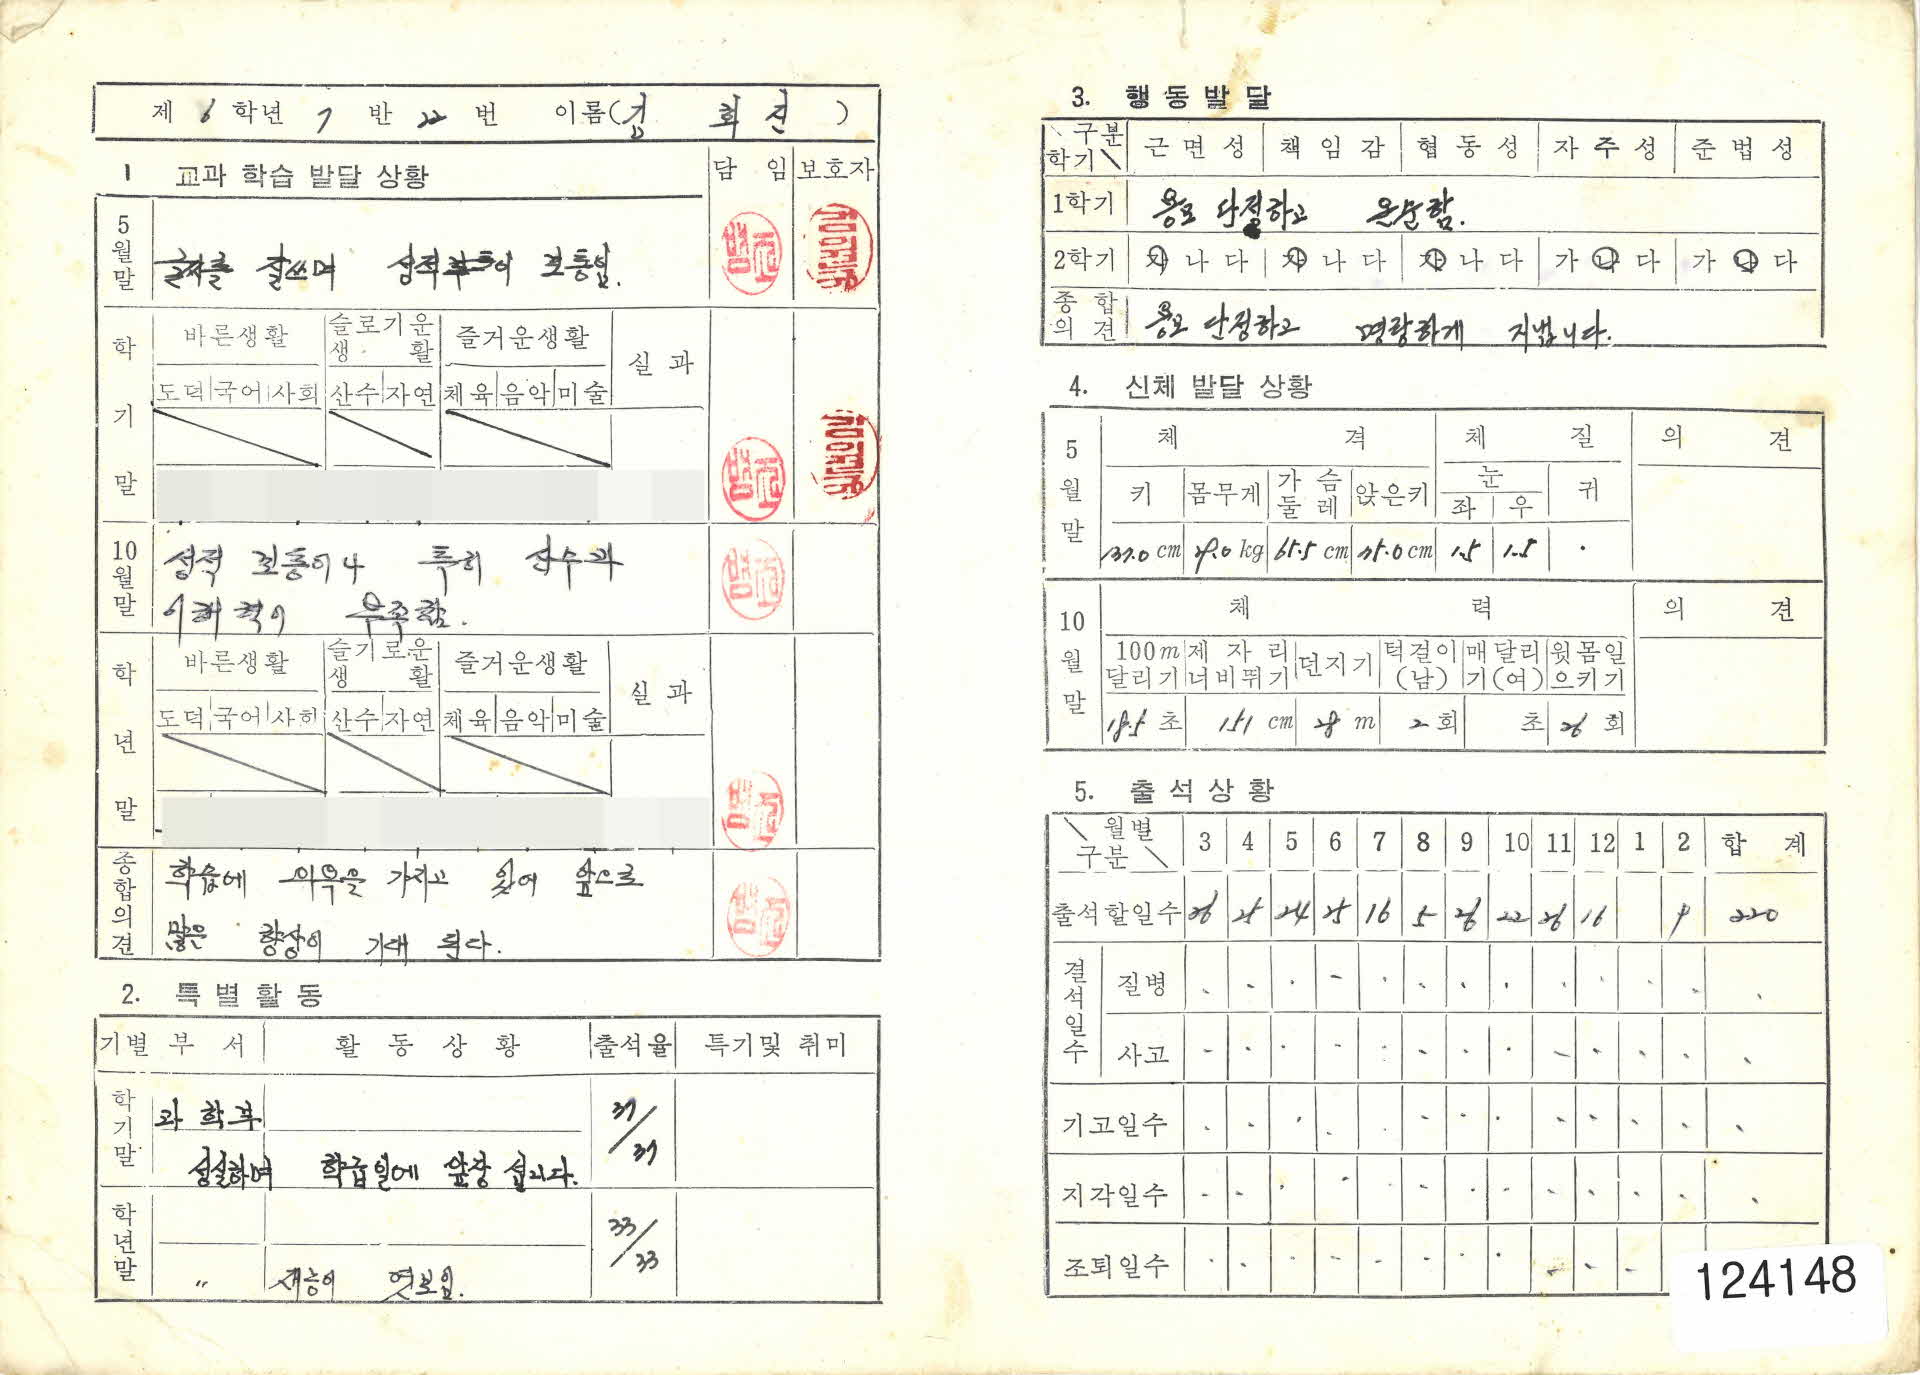 제 6 학년 7 반 22 번 이름( 김 희 진 )
1 교과 학습 발달 상황 담 임 보호자
5월말 글자를 잘쓰며 성적부등이 보통임.
학기말
바른생활 슬로기운생활 즐거운생활 실 과
도덕 국어 사회 산수 자연 체육 음악 미술
10월말 성적 보통이나 특히 산수과
이해력이 부족함.
학년말
바른생활 슬기로운생활 즐거운생활 실 과
도덕 국어 사회 산수 자연 체육 음악 미술
종합의견 학습에 의욕을 가지고 있어 앞으로
많은 향상이 기대 된다.
2. 특별활동
기별 부 서 활 동 상 황 출석율 특기및 취미
학기말 과학부 31/31
성실하며 학급일에 앞장 섭니다.
학년말 33/33
〃 재능이 엿보임.
3. 행동발달
구분 학기 근면성 책임감 협동성 자주성 준법성
1학기 용모 단정하고 온순함.
2학기 가 나 다 가 나 다 가 나 다 가 나 다 가 나 다
종합의견 용모 단정하고 명랑하게 지냅니다.
4. 신체 발달 상황
5월말 체 격 체 질 의 견
키 몸무게 가슴둘레 앉은키 눈 귀
좌 우
137.0 cm 29.0 kg 65.5 cm 75.0 cm 1.5 1.5 ·
10월말 체 력 의 견
100m달리기 제자리너비뛰기 던지기 턱걸이(남) 매달리기(여) 윗몸일으키기
18.5 초 151 cm 28 m 2 회 초 26 회
5. 출석상황
월별 구분 3 4 5 6 7 8 9 10 11 12 1 2 합 계
출석할일수 26 25 24 25 16 5 26 22 26 16 9 220
결석일수 질병
사고
기고일수
지각일수
조퇴일수
124148